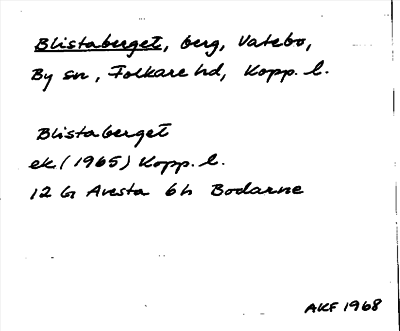 Blistaberget, berg, Vatebo,
By sn, Folkare hd, Kopp. l.
Blistaberget
ek. (1965) Kopp. l.
12 G Avesta 6h Bodarne
AKF 1968